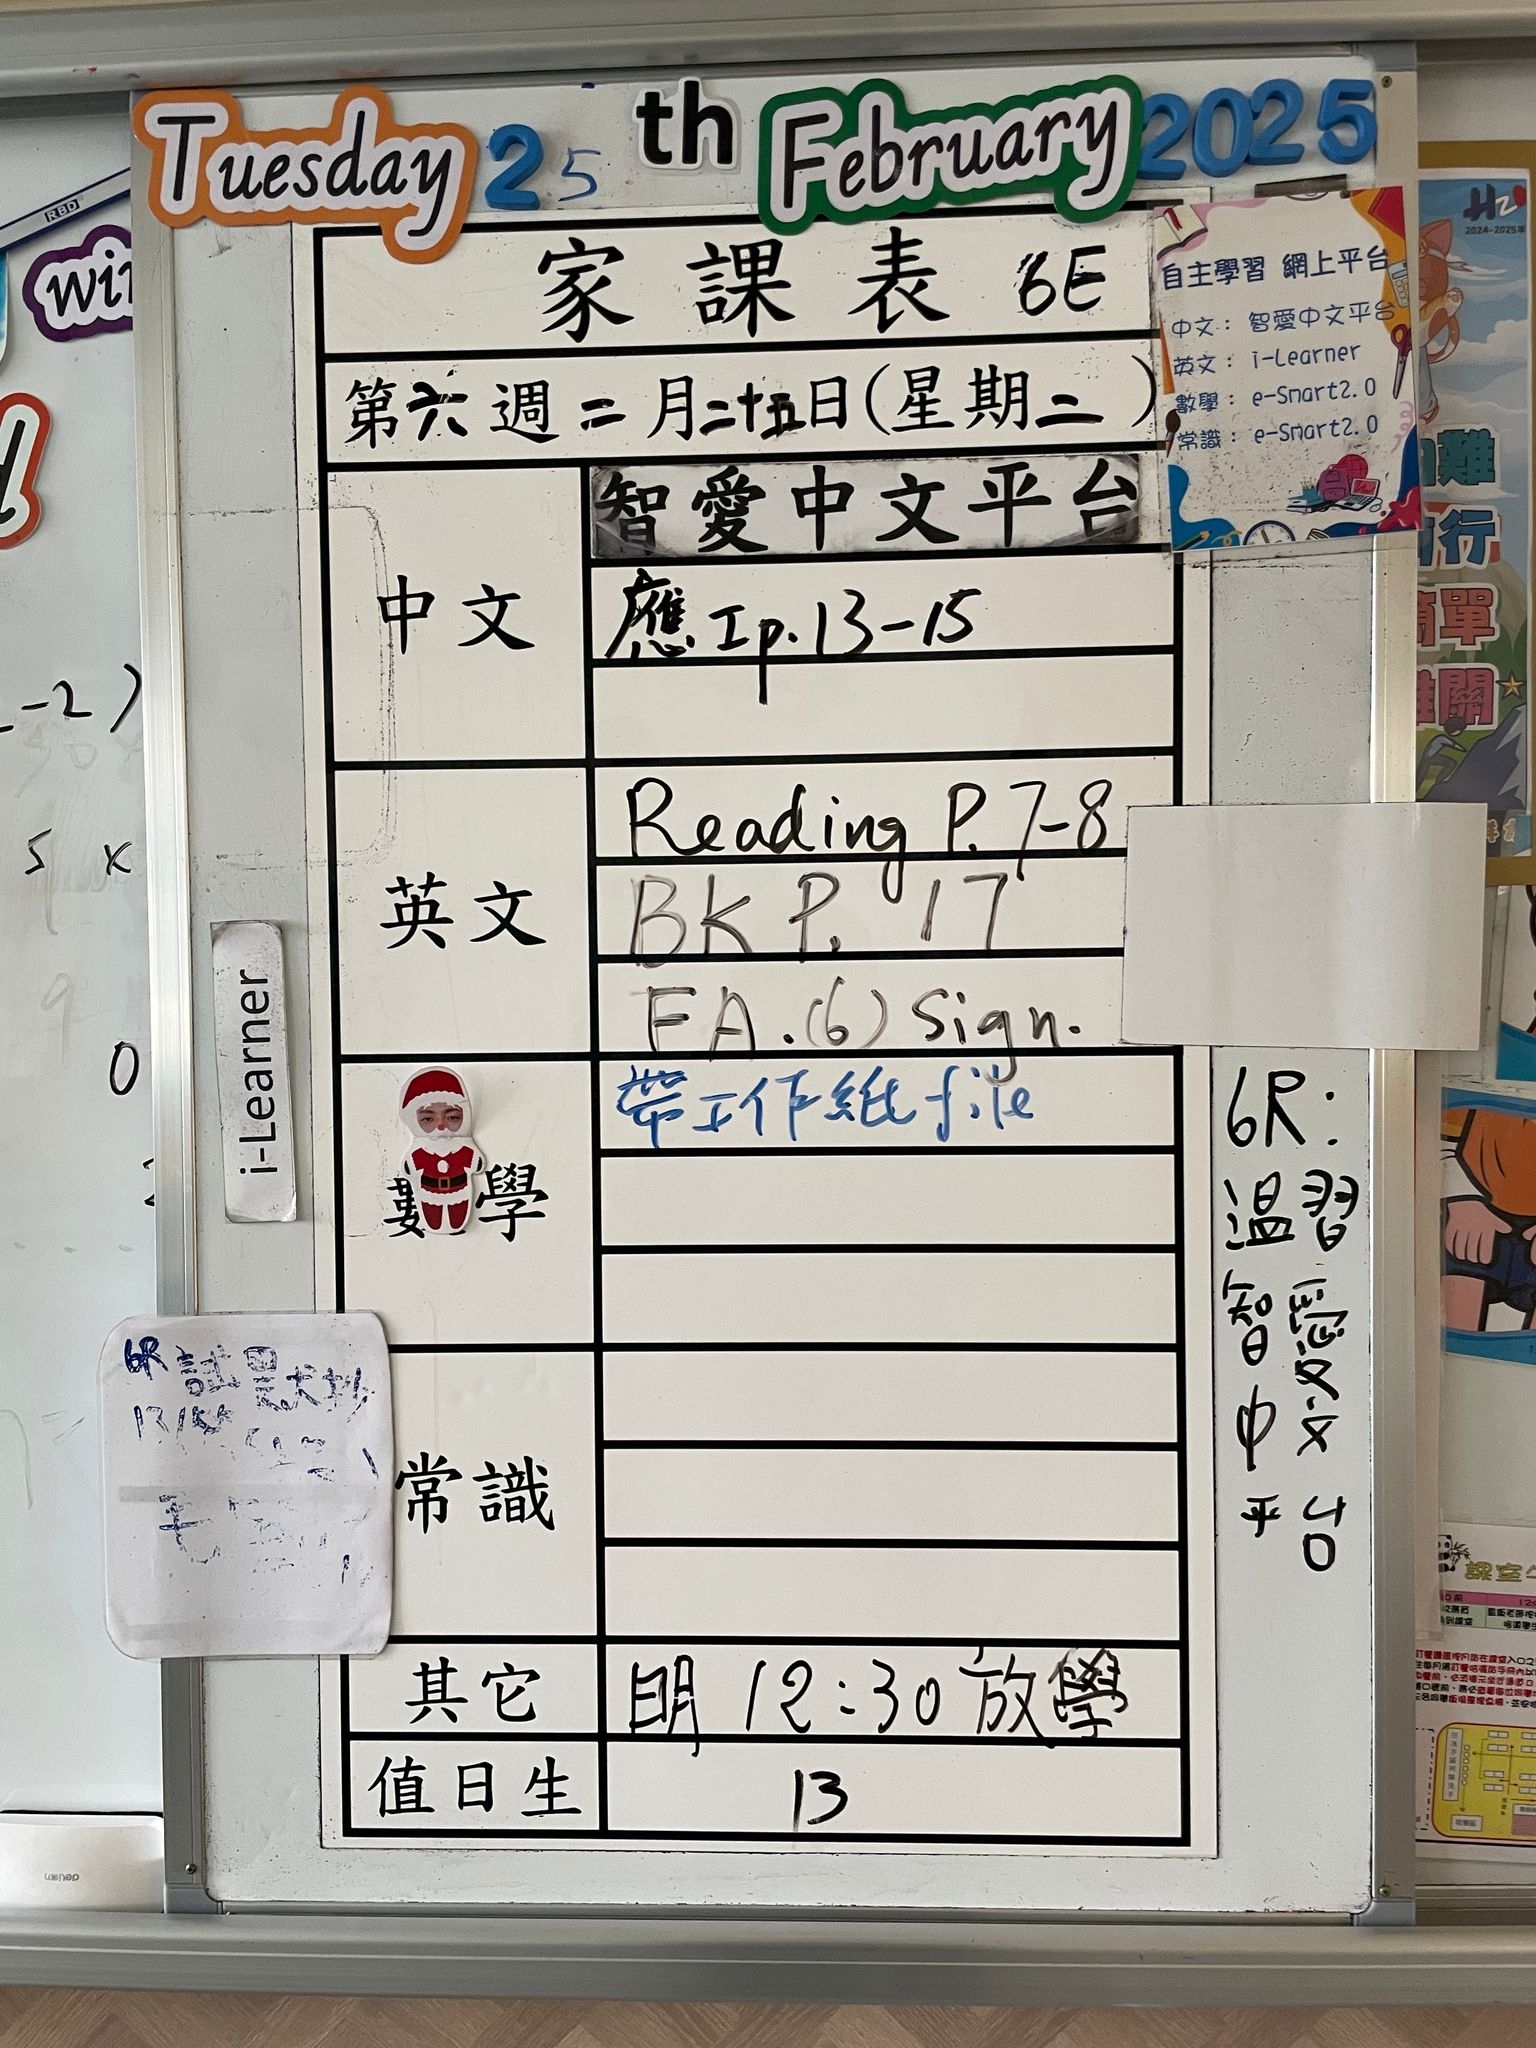 Tuesday 25th February 2025
家課表 6E
第六週二月二十五日(星期二)
中文
智愛中文平台
應 I p.13-15
英文
Reading P.7-8
BK P. 17
FA.(6) Sign.
數學
帶工作紙 file
常識
其它
明 12:30 放學
值日生
13
自主學習 網上平台
中文： 智愛中文平台
英文： i-Learner
數學： e-Smart2.0
常識： e-Smart2.0
i-Learner
6R:
溫習
智愛
中文
平台
6R 試默抄
RBD
2024-2025年
deli